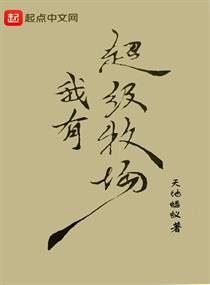 起点中文网
我有
超级牧场
天地蟻蚁著